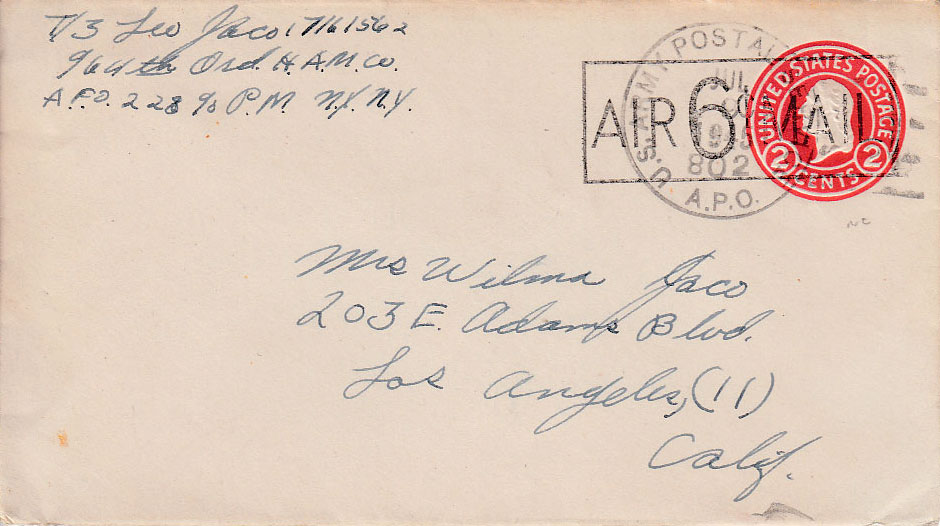 T/3 Leo Jaco 17161562
964th Ord. H.A.M. Co.
A.P.O. 228 % P.M. N.Y. N.Y.
U.S. ARMY POSTAL
JUL
802
A.P.O.
AIR 6¢ MAIL
UNITED STATES POSTAGE
2 CENTS 2
Mrs Wilma Jaco
203 E. Adams Blvd.
Los Angeles, (11)
Calif.